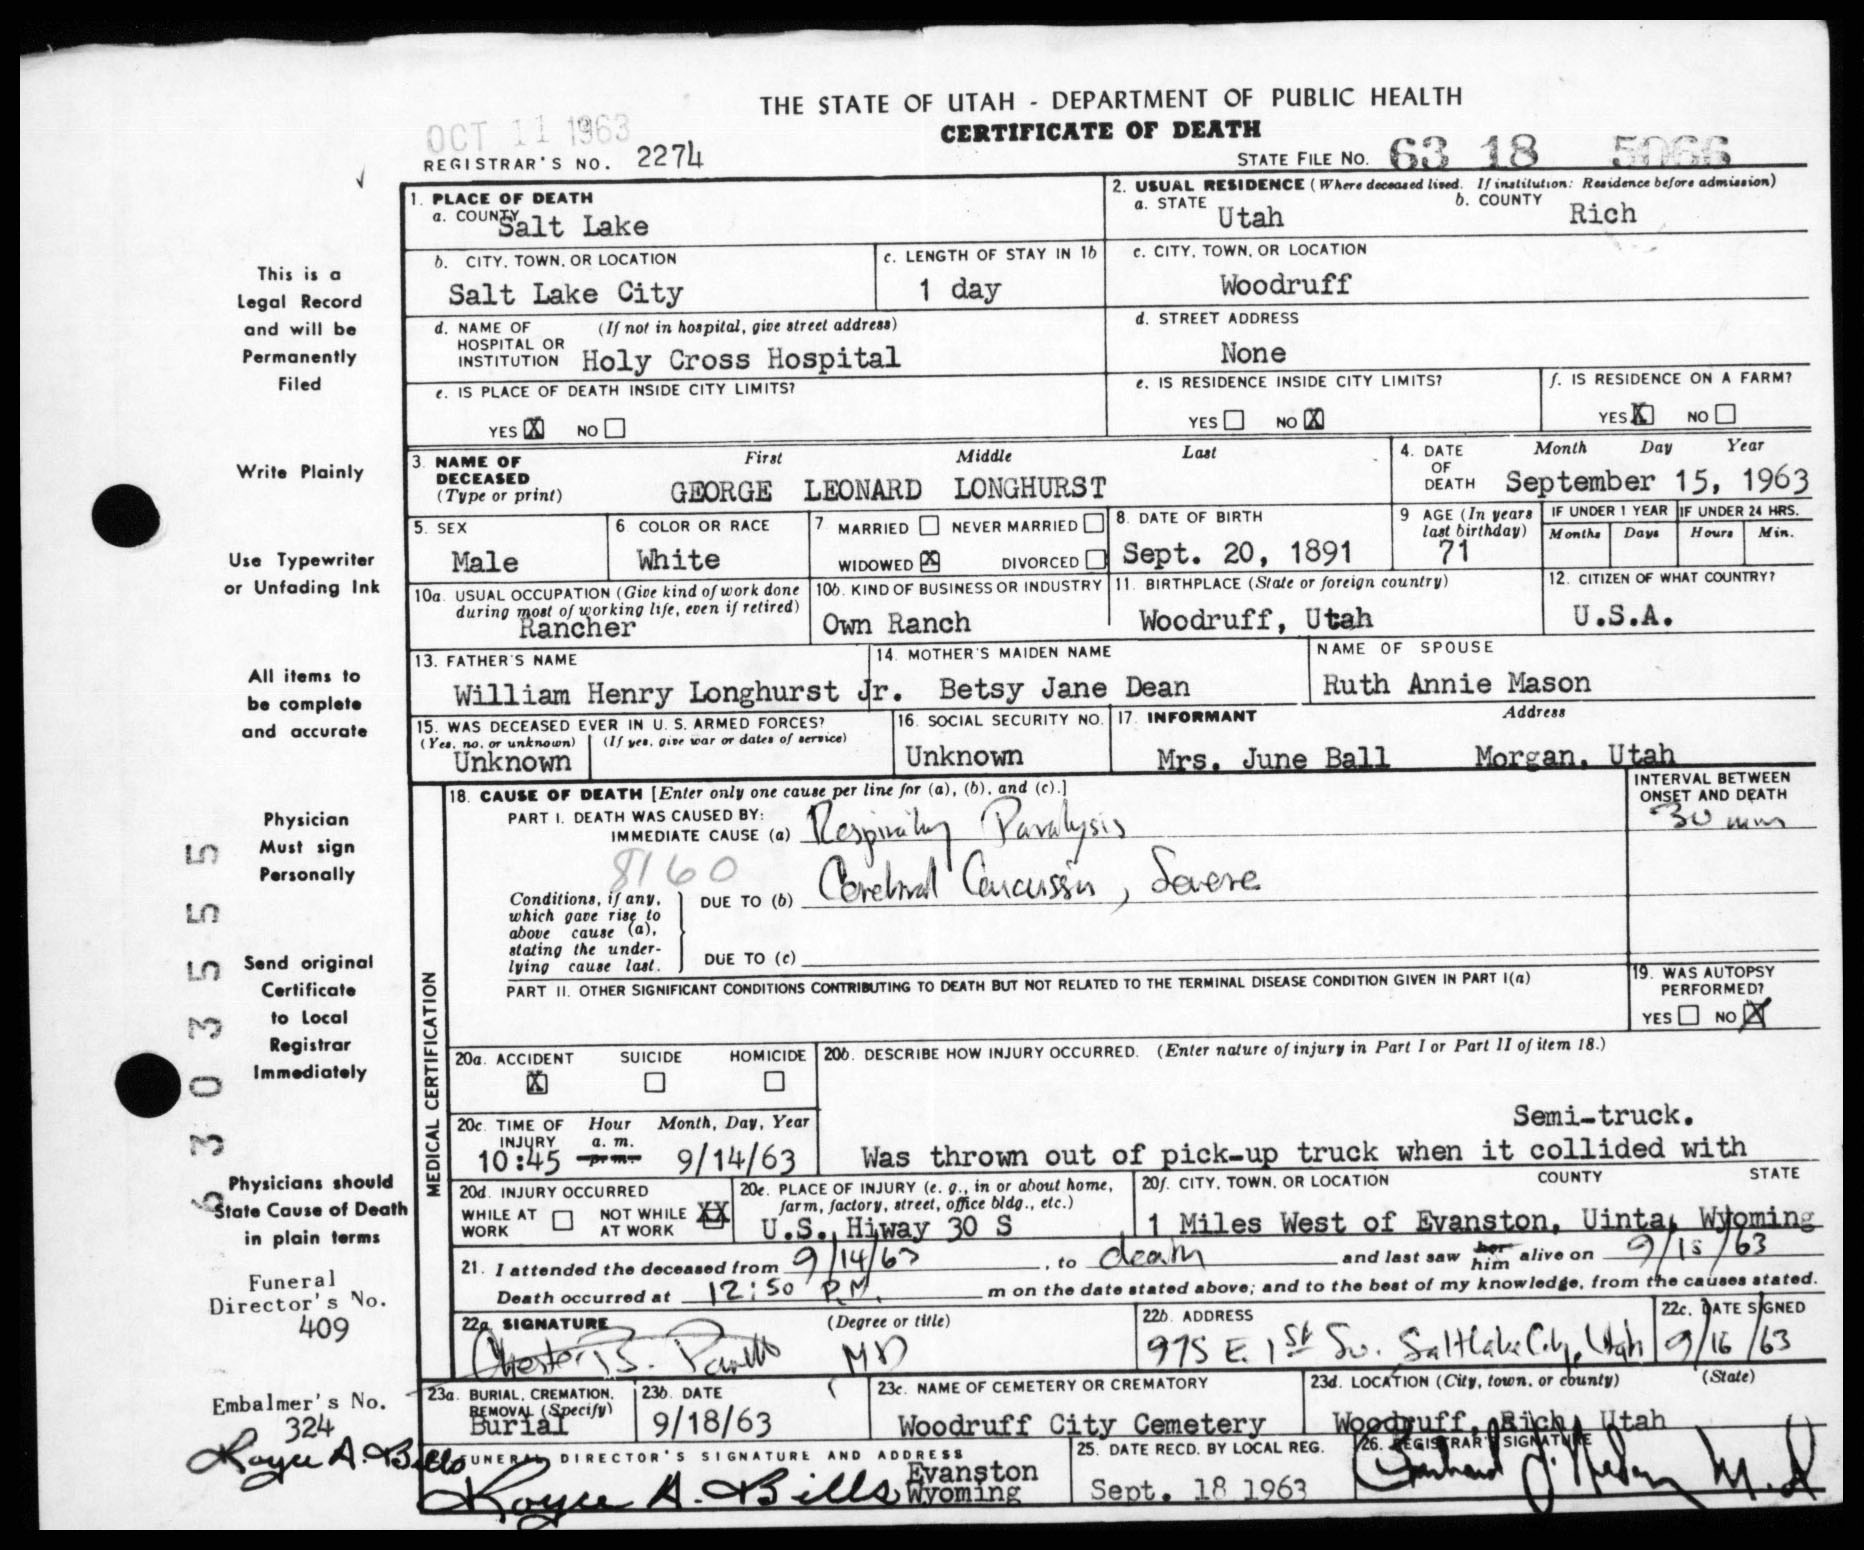 THE STATE OF UTAH - DEPARTMENT OF PUBLIC HEALTH
CERTIFICATE OF DEATH
OCT 11 1963
REGISTRAR'S NO. 2274
STATE FILE NO. 63 18 5066
This is a
Legal Record
and will be
Permanently
Filed
Write Plainly
Use Typewriter
or Unfading Ink
All items to
be complete
and accurate
Physician
Must sign
Personally
Send original
Certificate
to Local
Registrar
Immediately
Physicians should
State Cause of Death
in plain terms
Funeral
Director's No.
409
Embalmer's No.
324
Royce A. Bills
63035555
1. PLACE OF DEATH
a. COUNTY
Salt Lake
2. USUAL RESIDENCE (Where deceased lived. If institution: Residence before admission)
a. STATE Utah
b. COUNTY Rich
b. CITY, TOWN, OR LOCATION
Salt Lake City
c. LENGTH OF STAY IN 1b
1 day
c. CITY, TOWN, OR LOCATION
Woodruff
d. NAME OF HOSPITAL OR INSTITUTION (If not in hospital, give street address)
Holy Cross Hospital
d. STREET ADDRESS
None
e. IS PLACE OF DEATH INSIDE CITY LIMITS?
YES X NO
e. IS RESIDENCE INSIDE CITY LIMITS?
YES NO X
f. IS RESIDENCE ON A FARM?
YES X NO
3. NAME OF DECEASED (Type or print)
First Middle Last
GEORGE LEONARD LONGHURST
4. DATE OF DEATH
Month Day Year
September 15, 1963
5. SEX
Male
6 COLOR OR RACE
White
7. MARRIED NEVER MARRIED
WIDOWED X DIVORCED
8. DATE OF BIRTH
Sept. 20, 1891
9 AGE (In years last birthday)
71
IF UNDER 1 YEAR
Months Days
IF UNDER 24 HRS.
Hours Min.
10a. USUAL OCCUPATION (Give kind of work done during most of working life, even if retired)
Rancher
10b. KIND OF BUSINESS OR INDUSTRY
Own Ranch
11. BIRTHPLACE (State or foreign country)
Woodruff, Utah
12. CITIZEN OF WHAT COUNTRY?
U.S.A.
13. FATHER'S NAME
William Henry Longhurst Jr.
14. MOTHER'S MAIDEN NAME
Betsy Jane Dean
NAME OF SPOUSE
Ruth Annie Mason
15. WAS DECEASED EVER IN U. S. ARMED FORCES?
(Yes, no, or unknown) (If yes, give war or dates of service)
Unknown
16. SOCIAL SECURITY NO.
Unknown
17. INFORMANT Address
Mrs. June Ball Morgan, Utah
MEDICAL CERTIFICATION
18. CAUSE OF DEATH [Enter only one cause per line for (a), (b), and (c).]
PART I. DEATH WAS CAUSED BY:
IMMEDIATE CAUSE (a) Respiratory Paralysis
INTERVAL BETWEEN
ONSET AND DEATH
30 min
8160
Conditions, if any, which gave rise to above cause (a), stating the underlying cause last.
DUE TO (b) Cerebral Concussion, Severe
DUE TO (c)
PART II. OTHER SIGNIFICANT CONDITIONS CONTRIBUTING TO DEATH BUT NOT RELATED TO THE TERMINAL DISEASE CONDITION GIVEN IN PART I(a)
19. WAS AUTOPSY PERFORMED?
YES NO X
20a. ACCIDENT SUICIDE HOMICIDE
X
20b. DESCRIBE HOW INJURY OCCURRED. (Enter nature of injury in Part I or Part II of item 18.)
Semi-truck.
Was thrown out of pick-up truck when it collided with
20c. TIME OF INJURY Hour Month, Day, Year
10:45 a. m. p. m. 9/14/63
20d. INJURY OCCURRED
WHILE AT WORK NOT WHILE AT WORK XX
20e. PLACE OF INJURY (e. g., in or about home, farm, factory, street, office bldg., etc.)
U.S. Hiway 30 S
20f. CITY, TOWN, OR LOCATION COUNTY STATE
1 Miles West of Evanston, Uinta, Wyoming
21. I attended the deceased from 9/14/63, to death and last saw her him alive on 9/15/63
Death occurred at 12:50 P.M. m on the date stated above; and to the best of my knowledge, from the causes stated.
22a. SIGNATURE (Degree or title)
Chester B. MD
22b. ADDRESS
975 E. 1st So. Salt Lake City, Utah
22c. DATE SIGNED
9/16/63
23a. BURIAL, CREMATION, REMOVAL (Specify)
Burial
23b. DATE
9/18/63
23c. NAME OF CEMETERY OR CREMATORY
Woodruff City Cemetery
23d. LOCATION (City, town, or county) (State)
Woodruff, Rich, Utah
FUNERAL DIRECTOR'S SIGNATURE AND ADDRESS
Royce A. Bills Evanston Wyoming
25. DATE RECD. BY LOCAL REG.
Sept. 18 1963
26. REGISTRAR'S SIGNATURE
M.D.